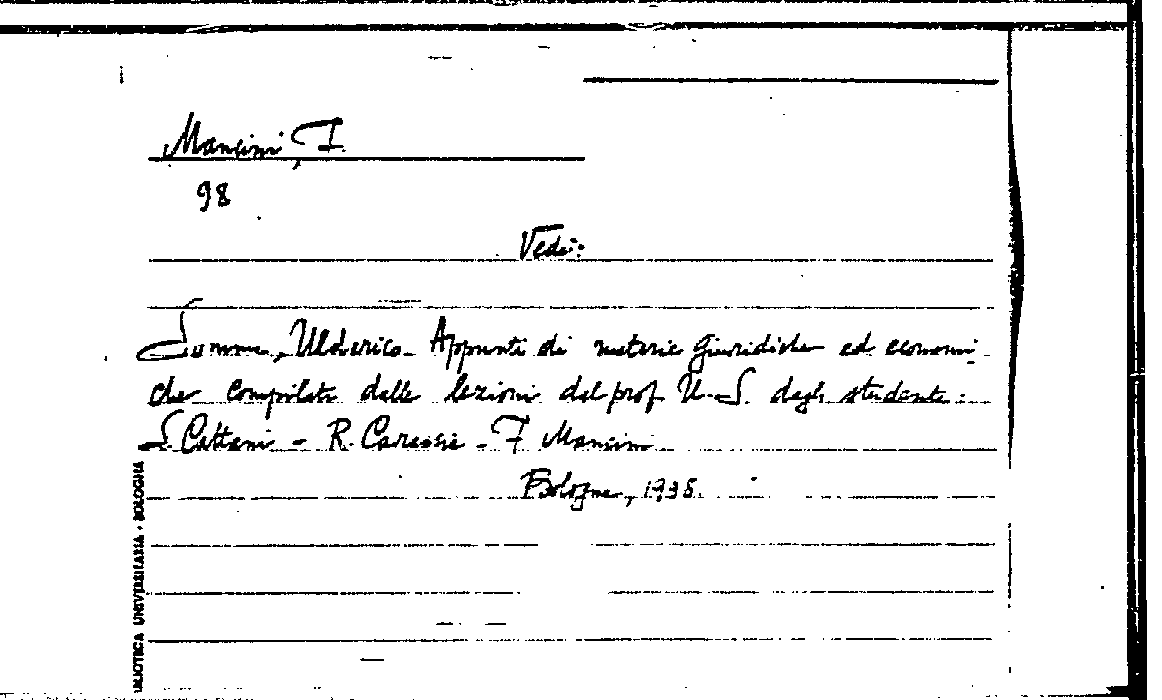 Mancini, F.
98
Vedi:
Somma, Ulderico. Appunti di materie giuridiche ed economi-
che compilati dalle lezioni del prof. U. S. dagli studenti:
S. Cattani - R. Caressi - F. Mancini
Bologna, 1938.
BIBLIOTECA UNIVERSITARIA - BOLOGNA